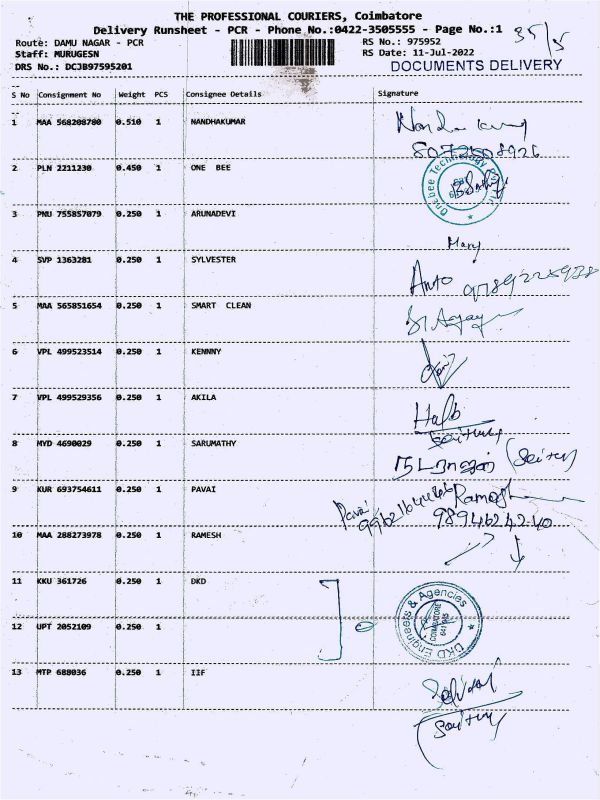 THE PROFESSIONAL COURIERS, Coimbatore
Delivery Runsheet - PCR - Phone No.:0422-3505555 - Page No.:1
35/5
Route: DAMU NAGAR - PCR
RS No.: 975952
Staff: MURUGESN
RS Date: 11-Jul-2022
DRS No.: DCJB97595201
DOCUMENTS DELIVERY
S No Consignment No Weight PCS Consignee Details Signature
1 MAA 568208780 0.510 1 NANDHAKUMAR
8072508926
2 PLN 2211230 0.450 1 ONE BEE
Onebee Technology
3 PNU 755857079 0.250 1 ARUNADEVI
Mary
4 SVP 1363281 0.250 1 SYLVESTER
Anto
5 MAA 565851654 0.250 1 SMART CLEAN
6 VPL 499523514 0.250 1 KENNNY
7 VPL 499529356 0.250 1 AKILA
8 MYD 4690029 0.250 1 SARUMATHY
9 KUR 693754611 0.250 1 PAVAI
Pavai
9894624240
10 MAA 288273978 0.250 1 RAMESH
11 KKU 361726 0.250 1 DKD
DKD Engineers & Agencies
COIMBATORE
12 UPT 2052109 0.250 1
13 MTP 688036 0.250 1 IIF